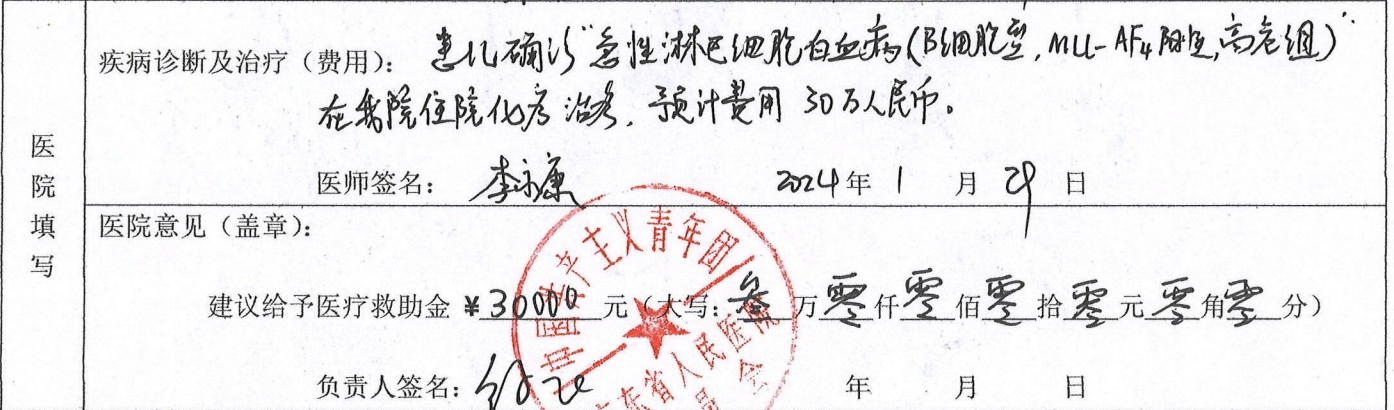 疾病诊断及治疗（费用）：患儿确诊"急性淋巴细胞白血病（B细胞型，MLL-AF4阳性，高危组）"
在我院住院化疗治疗，预计费用 30万人民币。
医师签名：李永康 2024年 1 月 29 日
医院填写
医院意见（盖章）：
建议给予医疗救助金 ¥30000 元（大写：叁万零仟零佰零拾零元零角零分）
负责人签名： 年 月 日
中国共产主义青年团
东省人民医院